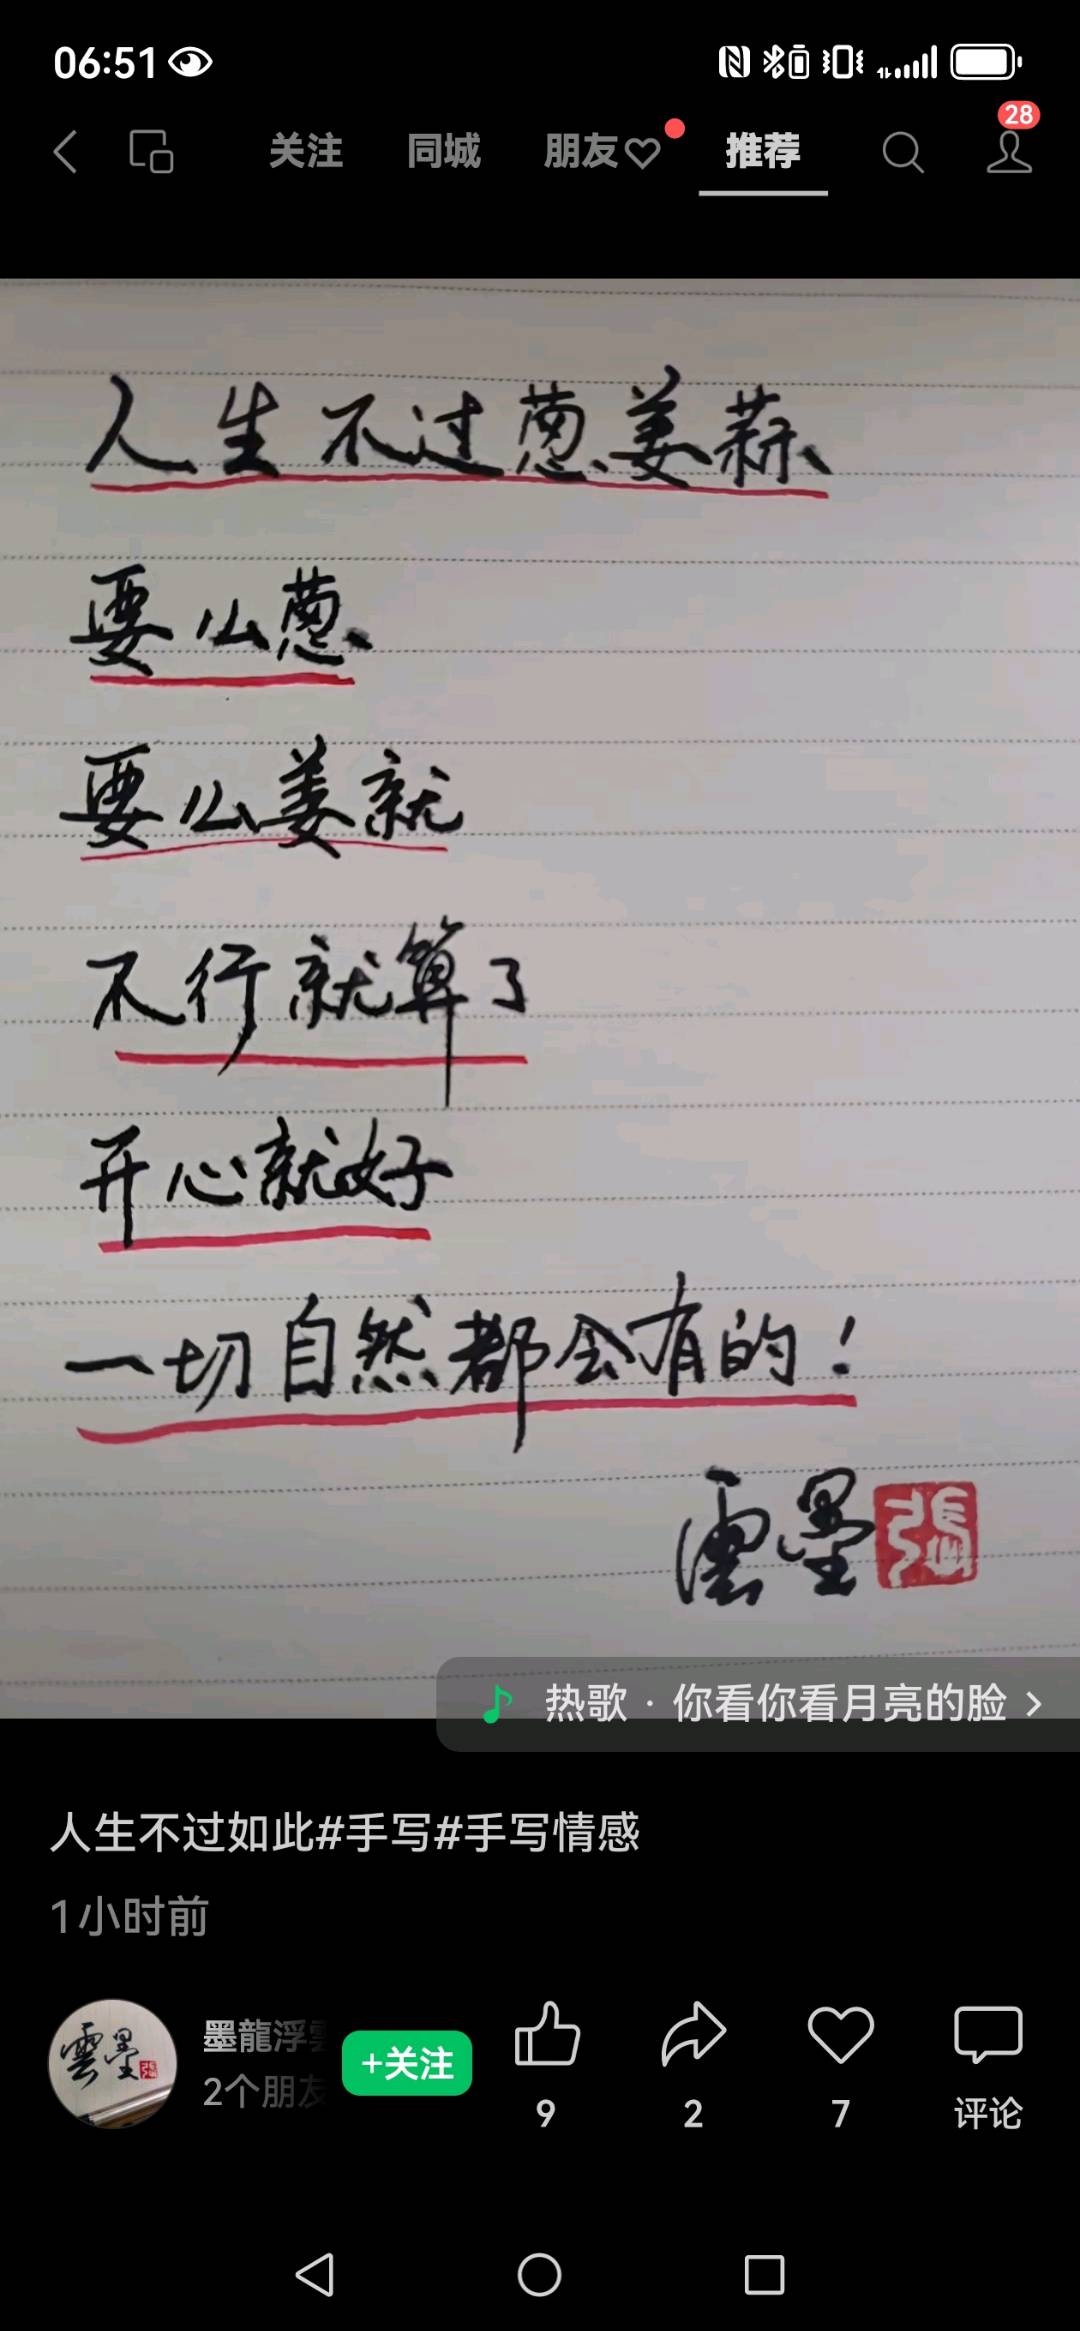 06:51
关注 同城 朋友 推荐 28
人生不过葱姜蒜
要么葱
要么姜就
不行就算了
开心就好
一切自然都会有的！
雲墨
热歌 · 你看你看月亮的脸
人生不过如此#手写#手写情感
1小时前
雲墨
墨龍浮雲
2个朋友
+关注
9 2 7 评论